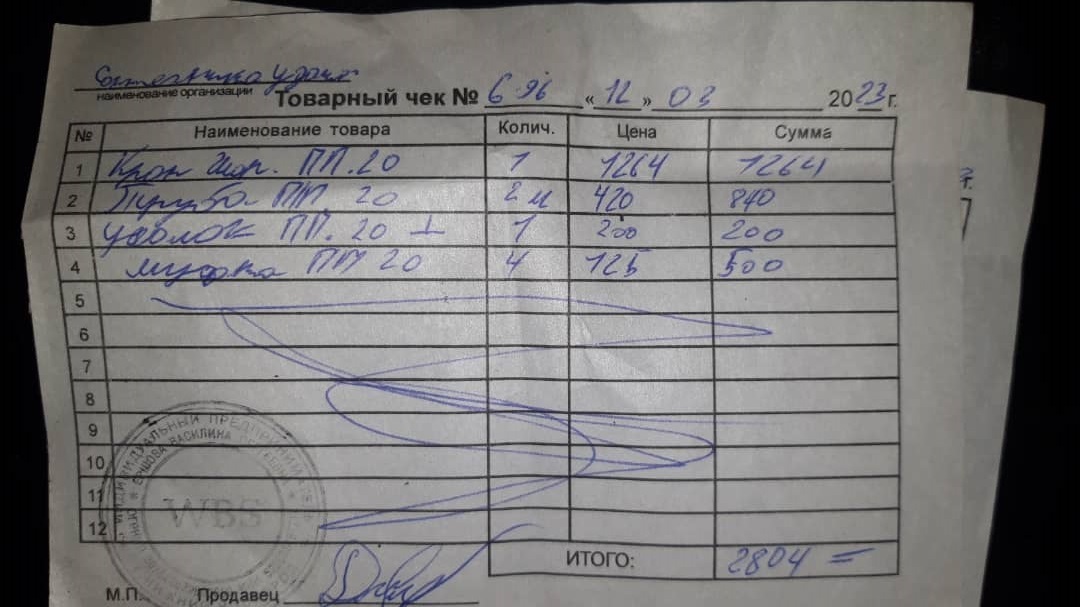 наименование организации
Товарный чек № 6 96 «12» 03 2023 г.
№ Наименование товара Колич. Цена Сумма
1 Кран ПП.20 1 1264 1264
2 Труба ПП 20 2 м 420 840
3 уголок ПП. 20 1 200 200
4 муфта ПП 20 4 125 500
5
6
7
8
9
10
11
12
ИТОГО: 2804 =
ИНДИВИДУАЛЬНЫЙ ПРЕДПРИНИМАТЕЛЬ
ЕРШОВА ВАСИЛИНА
WBS
М.П. Продавец